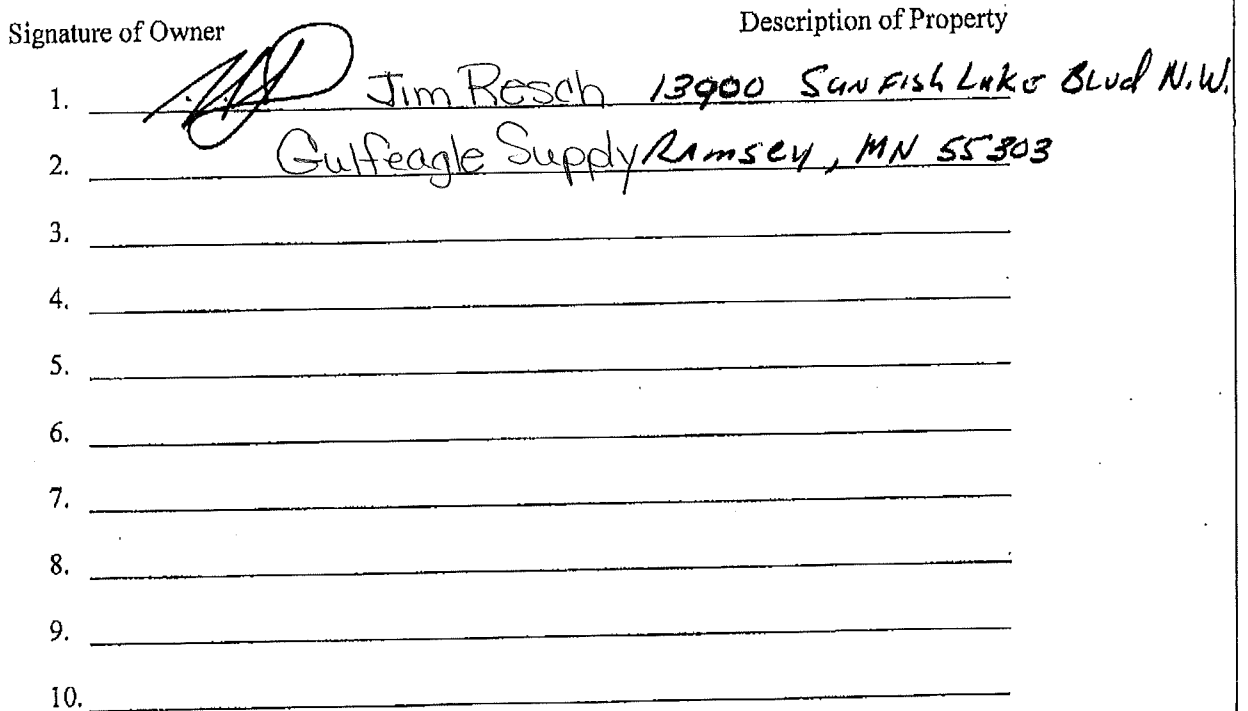 Signature of Owner Description of Property
1. Jim Resch 13900 Sunfish Lake Blvd N.W.
2. Gulfeagle Supply Ramsey, MN 55303
3.
4.
5.
6.
7.
8.
9.
10.